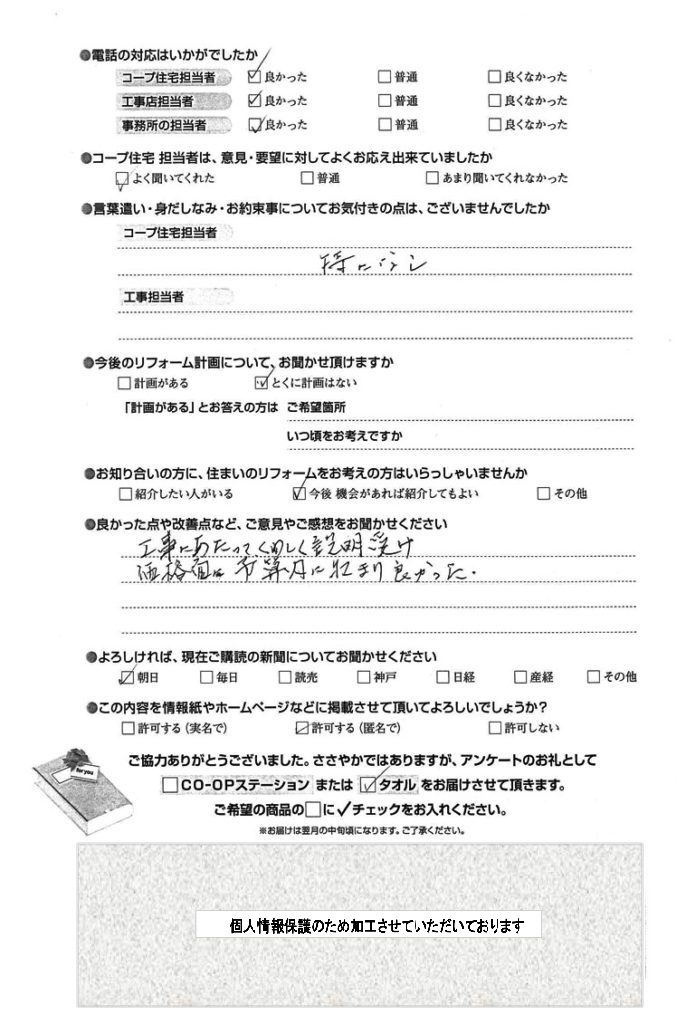 ●電話の対応はいかがでしたか
コープ住宅担当者 ☑良かった □普通 □良くなかった
工事店担当者 ☑良かった □普通 □良くなかった
事務所の担当者 ☑良かった □普通 □良くなかった
●コープ住宅 担当者は、意見・要望に対してよくお応え出来ていましたか
☑よく聞いてくれた □普通 □あまり聞いてくれなかった
●言葉遣い・身だしなみ・お約束事についてお気付きの点は、ございませんでしたか
コープ住宅担当者
特になし
工事担当者
●今後のリフォーム計画について、お聞かせ頂けますか
□計画がある ☑とくに計画はない
「計画がある」とお答えの方は ご希望箇所
いつ頃をお考えですか
●お知り合いの方に、住まいのリフォームをお考えの方はいらっしゃいませんか
□紹介したい人がいる ☑今後 機会があれば紹介してもよい □その他
●良かった点や改善点など、ご意見やご感想をお聞かせください
工事にあたってくわしく説明受け
価格面は予算内に収まり良かった.
●よろしければ、現在ご購読の新聞についてお聞かせください
☑朝日 □毎日 □読売 □神戸 □日経 □産経 □その他
●この内容を情報紙やホームページなどに掲載させて頂いてよろしいでしょうか?
□許可する(実名で) ☑許可する(匿名で) □許可しない
for you
ご協力ありがとうございました。ささやかではありますが、アンケートのお礼として
□CO-OPステーション または ☑タオル をお届けさせて頂きます。
ご希望の商品の□に✓チェックをお入れください。
※お届けは翌月の中旬頃になります。ご了承ください。
個人情報保護のため加工させていただいております